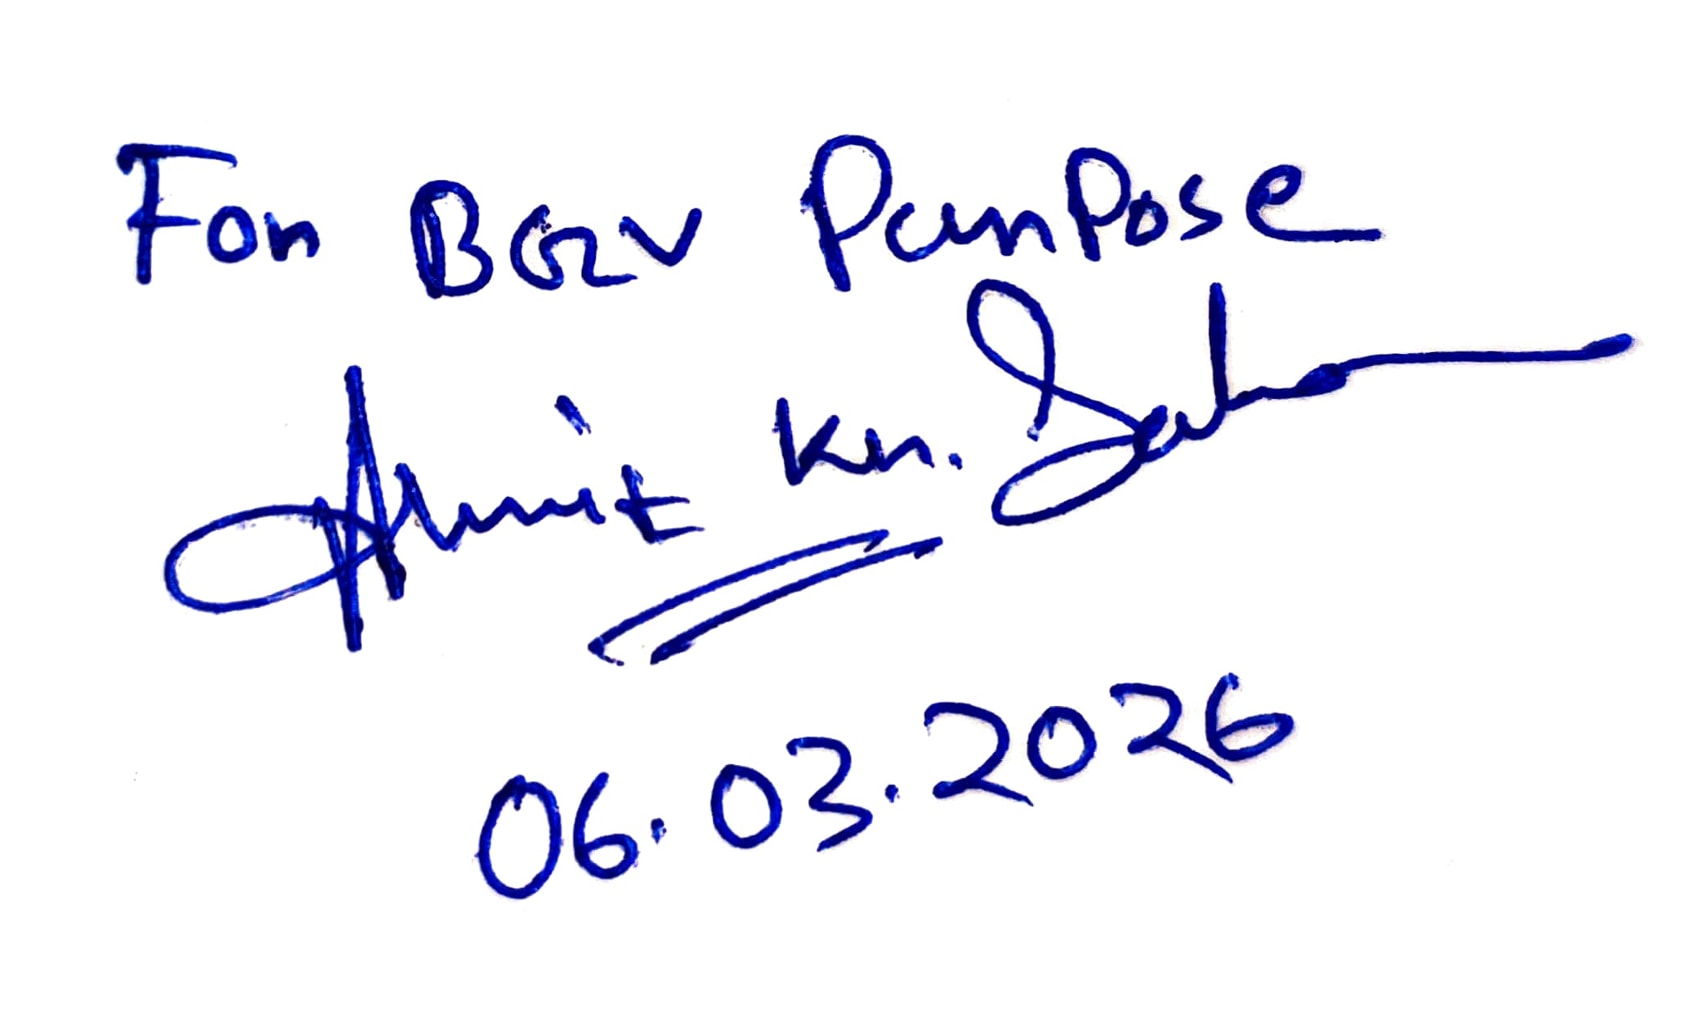 For BGV PurPose
Amit Kr. Sahoo
06.03.2026